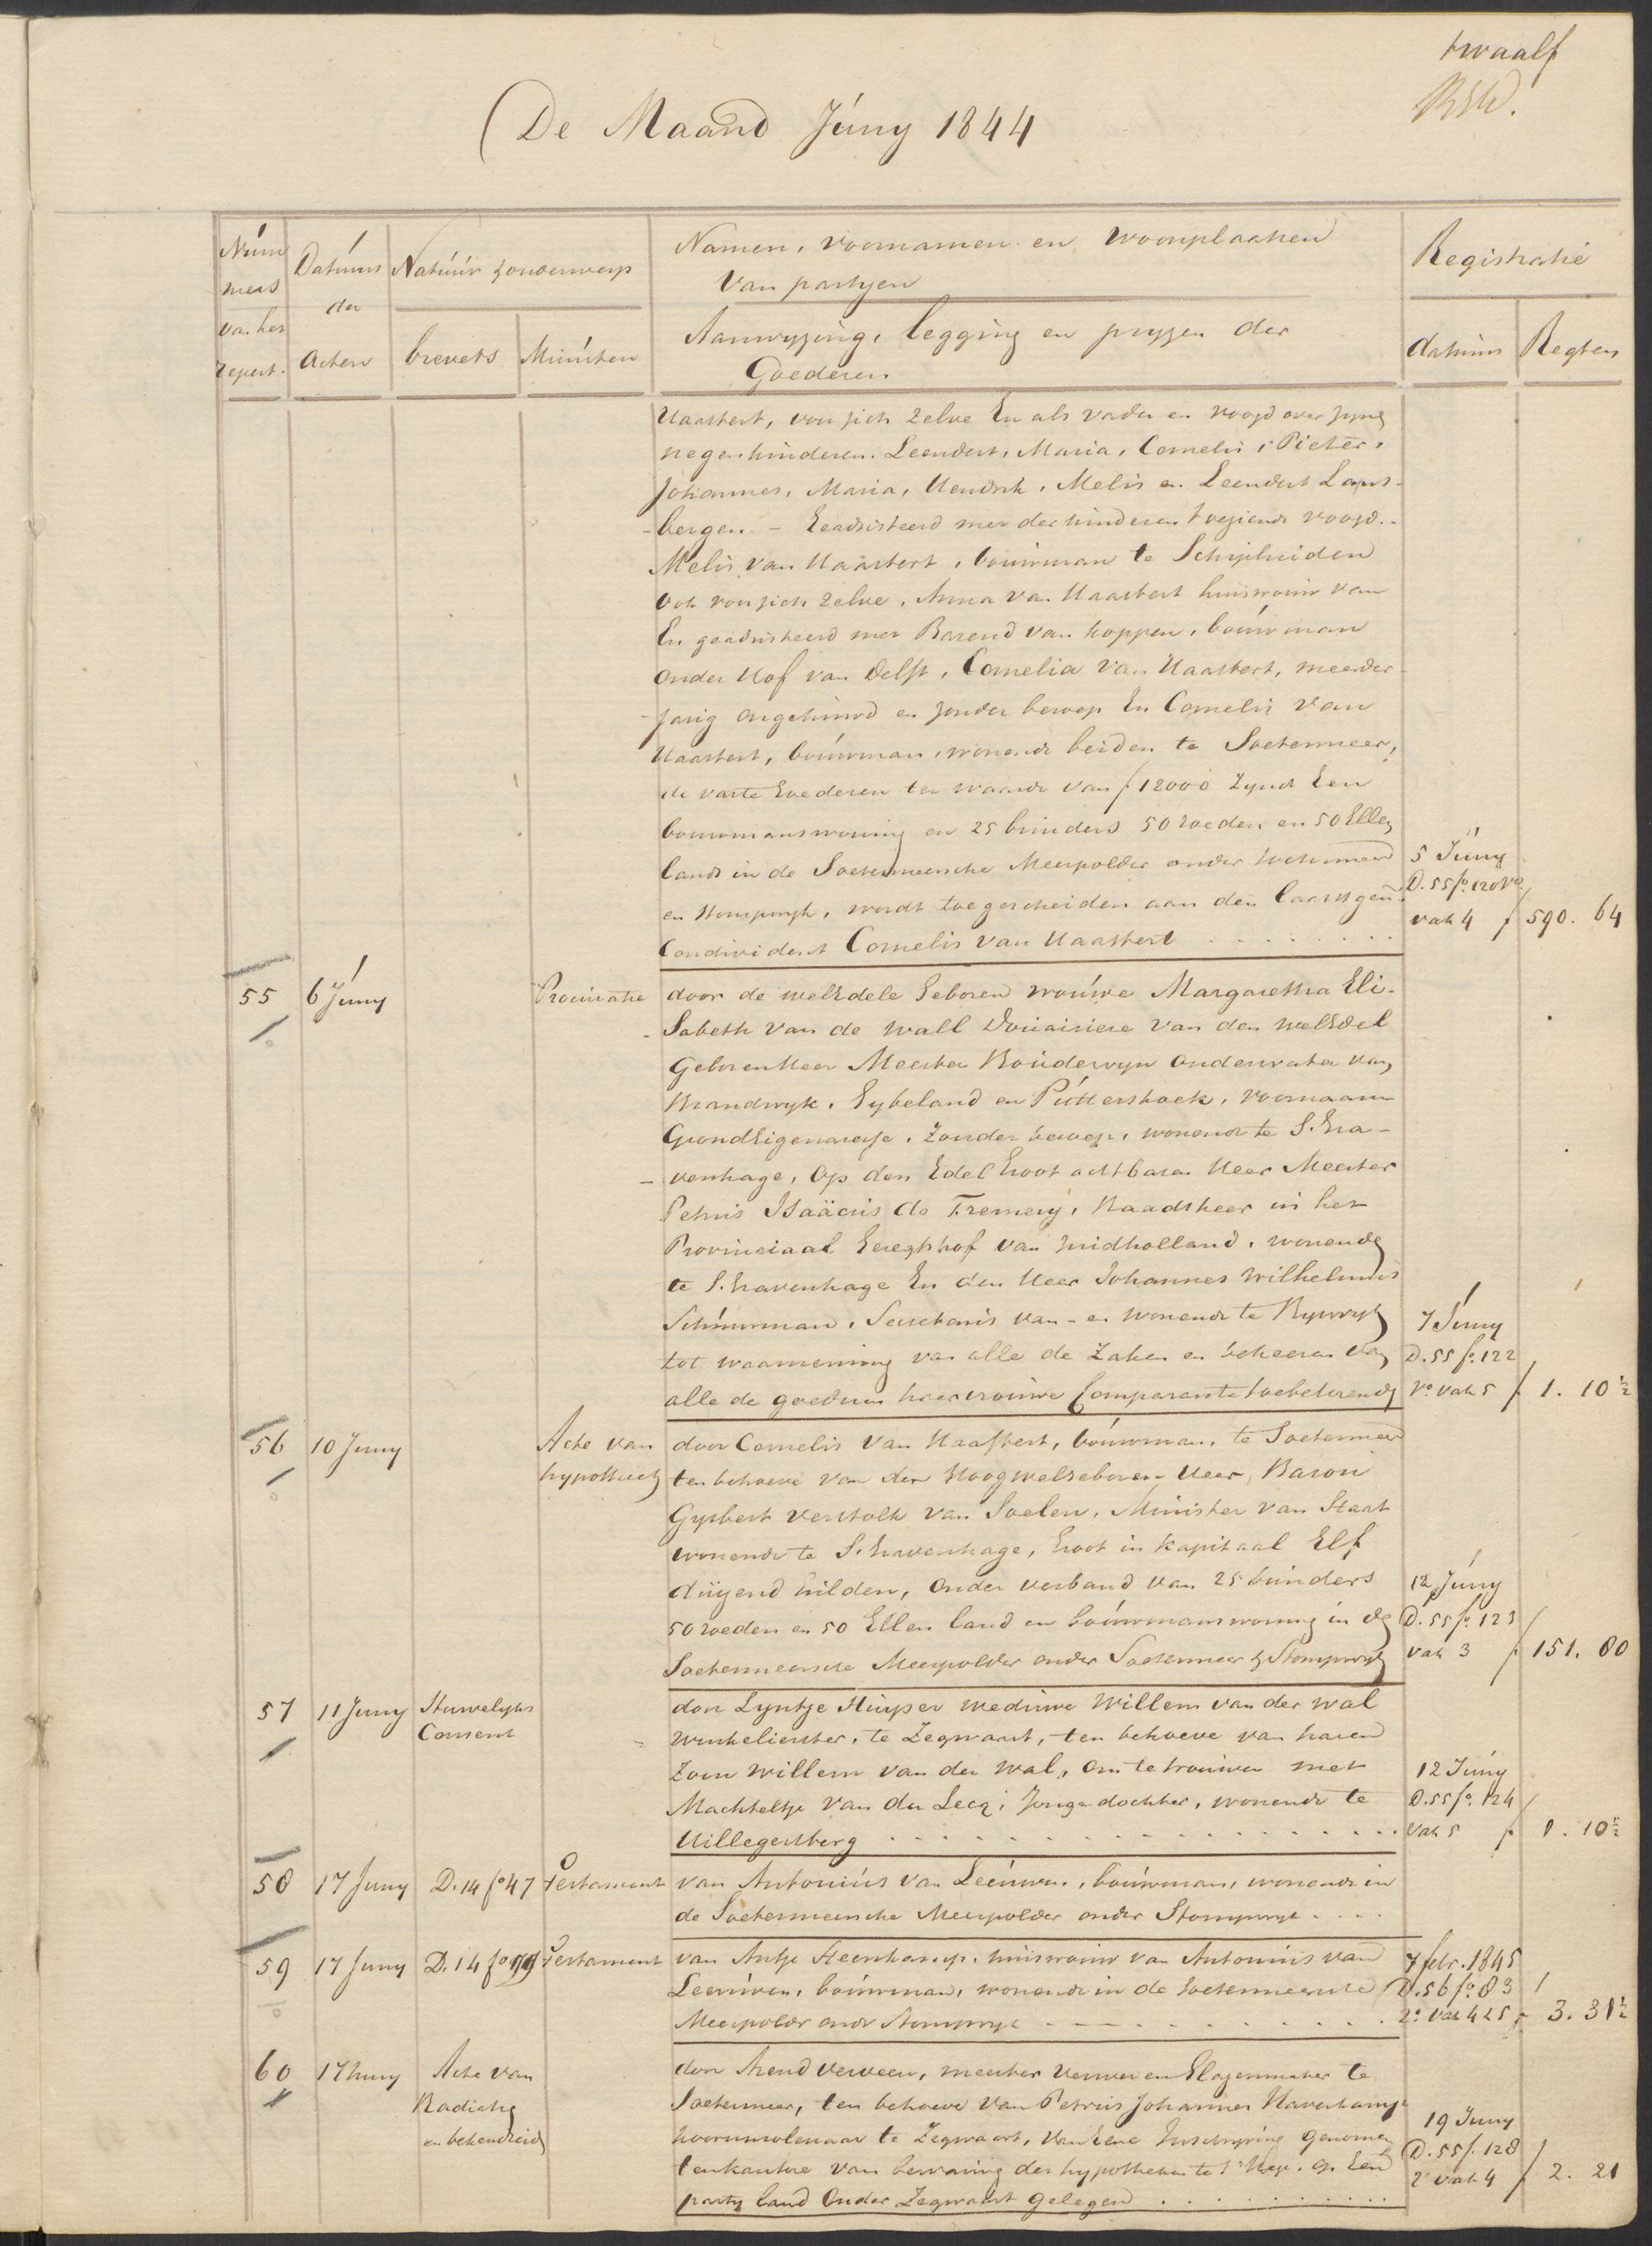 twaalf
De Maand Júny 1844
Núm
mers
van het
repert.
Datúms
der
Acten
Natúúr & onderwerp
brevets
Minúten
Namen, voornamen en woonplaatsen
van partyen
Aanwyzing, legging en pryzen der
Goederen
Registratie
datúm
Regten
Haastert, voor zich zelve En als vader en voogd over zyne
negen kinderen Leendert, Maria, Cornelis, Pieter,
Johannes, Maria, Hendrik, Melis en Leendert Lans-
-bergen. - Geadsisteerd met der kinderen toeziende voogd.-
Melis van Haastert, bouwman te Schipluiden
ook voor zich zelve, Anna van Haastert huisvrouw van
En geadsisteerd met Barend van Koppen, boúwman
onder Hof van Delft, Cornelia van Haastert, meerder-
-jarig ongehuwd en zonder beroep En Cornelis van
Haastert, boúwman, wonende beiden te Soetermeer,
de vaste Goederen ter waarde van f 12000 Zynde Een
bouwmanswoning en 25 bunders 50 roeden en 50 Ellen
lands in de Soetermeersche Meerpolder onder Soetermeer
en Stompwyk, wordt toegescheiden aan den laatstgen.
Condivident Cornelis van Haastert . . . . . . . .
5 Júny
D. 55 fo. 120 vo.
vak 4 f 590. 64
55 6 Júny Procuratie door de welEdele Geboren vroúwe Margaretha Eli-
-sabeth van de Wall Doúairiere van den welEdel
Geboren Heer Meester Boúdewyn Onderwater van
Brandwyk, Gybeland en Púttershoek, voornaam
GrondEigenaresse, Zonder beroep, wonende te S.Gra-
-venhage, Op den Edel Groot achtbaren Heer Meester
Petrús Isaäcús de Fremery, Raadsheer in het
Provinciaal Geregtshof van Zuidholland, wonende
te S.Gravenhage En den Heer Johannes Wilhelmus
Schúúrman, Secretaris van - en wonende te Ryswyk
tot waarneming van alle de Zaken en beheeren van
alle de goederen haar vroúwe Comparante toebehorende
7 Júny
D. 55 fo. 122
vo. vak 5 f 1. 10½
56 10 Juny Acte van
hypotheek
door Cornelis van Haastert, boúwman, te Soetermeer
ten behoeve van den HoogwelGeboren Heer, Baron
Gysbert Verstolk van Soelen, Minister van Staat
wonende te S.Gravenhage, Groot in Kapitaal Elf
duizend Gulden, Onder verband van 25 bunders
50 roeden en 50 Ellen land en boúwmanswoning in de
Soetermeersche Meerpolder onder Soetermeer & Stompwyk
12 Júny
D. 55 fo. 123
vak 3 f 151. 80
57 11 Juny Huwelyks
Consent
door Lyntje Kuyper weduwe Willem van der Wal
Winkelierster, te Zegwaart, ten behoeve van haren
Zoon Willem van der Wal, Om te trouwen met
Machteltje van der Lecq, Jonge dochter, wonende te
Hillegersberg . . . . . . . . . . . . . . . .
12 Júny
D. 55 fo. 124
vak 5 f 1. 10½
58 17 Juny D. 14 fo 47 Testament van Antoniús van Leeúwen, boúwman, wonende in
de Soetermeersche Meerpolder onder Stompwyk . . . .
59 17 Juny D. 14 fo 99 Testament van Antje Steenkamp, huisvrouw van Antoniús van
Leeúwen, boúwman, wonende in de Soetermeersche
Meerpolder onder Stompwyk . . . . . . . . .
7 febr. 1845
D. 56 fo. 83
vo. vak 4 & 5 f 3. 31½
60 17 Juny Acte van
Radiatie
en bekendheid
door Arend Verveen, meester verwer en Glazenmaker te
Soetermeer, ten behoeve van Petrús Johannes Haverkamp
koornmolenaar te Zegwaart, van Eene Inschryving genomen
ten kantore van bewaring der hypotheken te 's Hage, op Een
party land Onder Zegwaart gelegen . . . . . . . . .
19 Juny
D. 55 f. 128
vo vak 4 f 2. 21